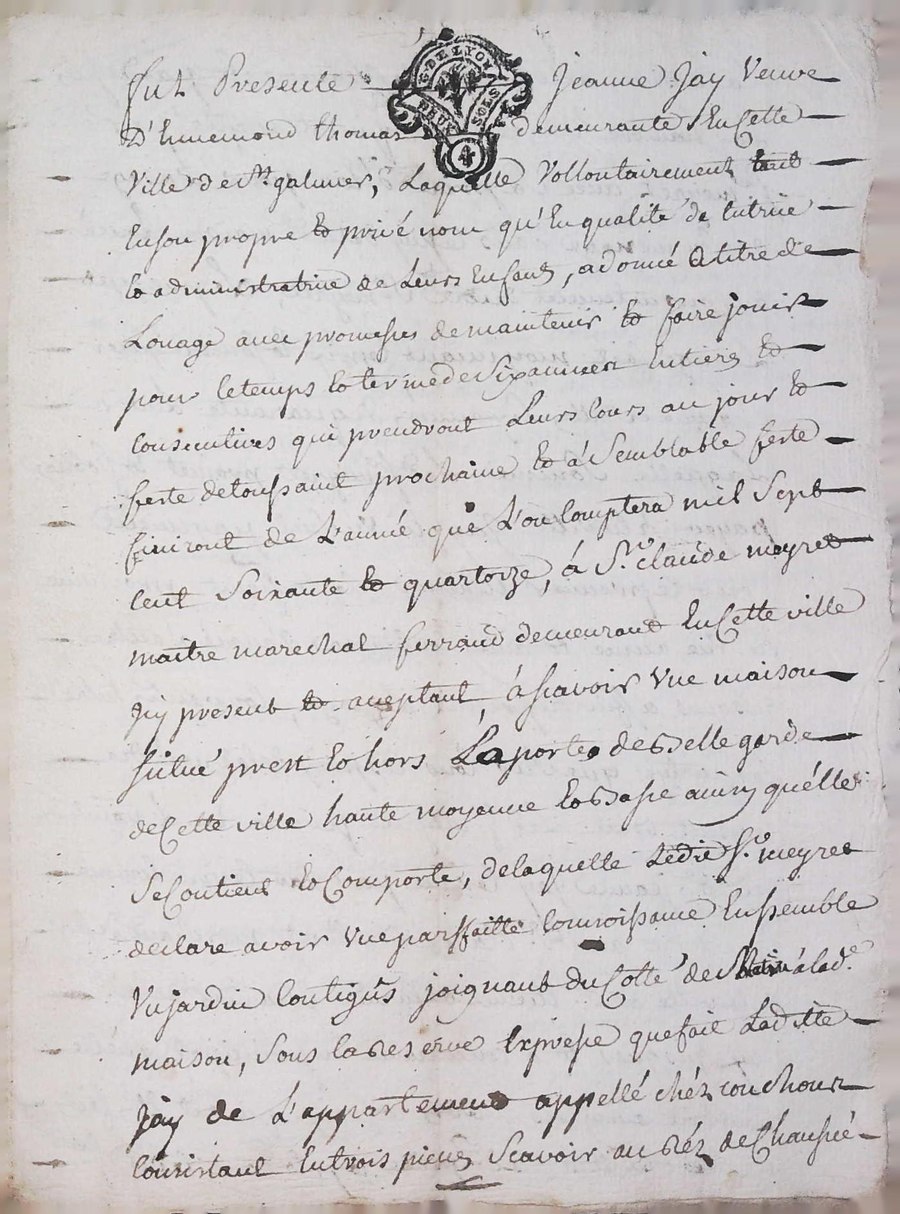 G. DE LYON
DEUX SOLS
4
Fut Presente Jeanne Jay Veuve
D'Ennemond thomas demeurante En Cette
Ville de St galmier, Laquelle Vollontairement tant
En son propre et privé nom qu'En qualité de tutrice
et administratrice de Leurs Enfans, a donné a titre de
Louage avec promesses de maintenir et faire jouir
pour le temps et terme de Six années entieres et
Consecutives qui prendront Leurs Cours au jour et
feste de toussaint prochaine et à Semblable feste
finiront de L'année que L'on Comptera mil Sept
Cent Soixante et quatorze, à Sr. Claude meyret
maitre marechal ferrand demeurant En Cette ville
Icy present et aceptant, à scavoir Vne maison
située prest et hors La porte de Bellegarde
de Cette ville haute moyenne et Basse ainsy quélle
Se Contient et Comporte, de laquelle Ledit Sr. meyret
declare avoir Vne parffaitte Connoissance Enssemble
Vn jardin Contigûs joignant du Cotté de à lad.e
maison, Sous la Reserve Expresse que fait Laditte
Jay de L'appartement appellé chéz
Consistant En trois pieces Scavoir au Réz de Chaussée